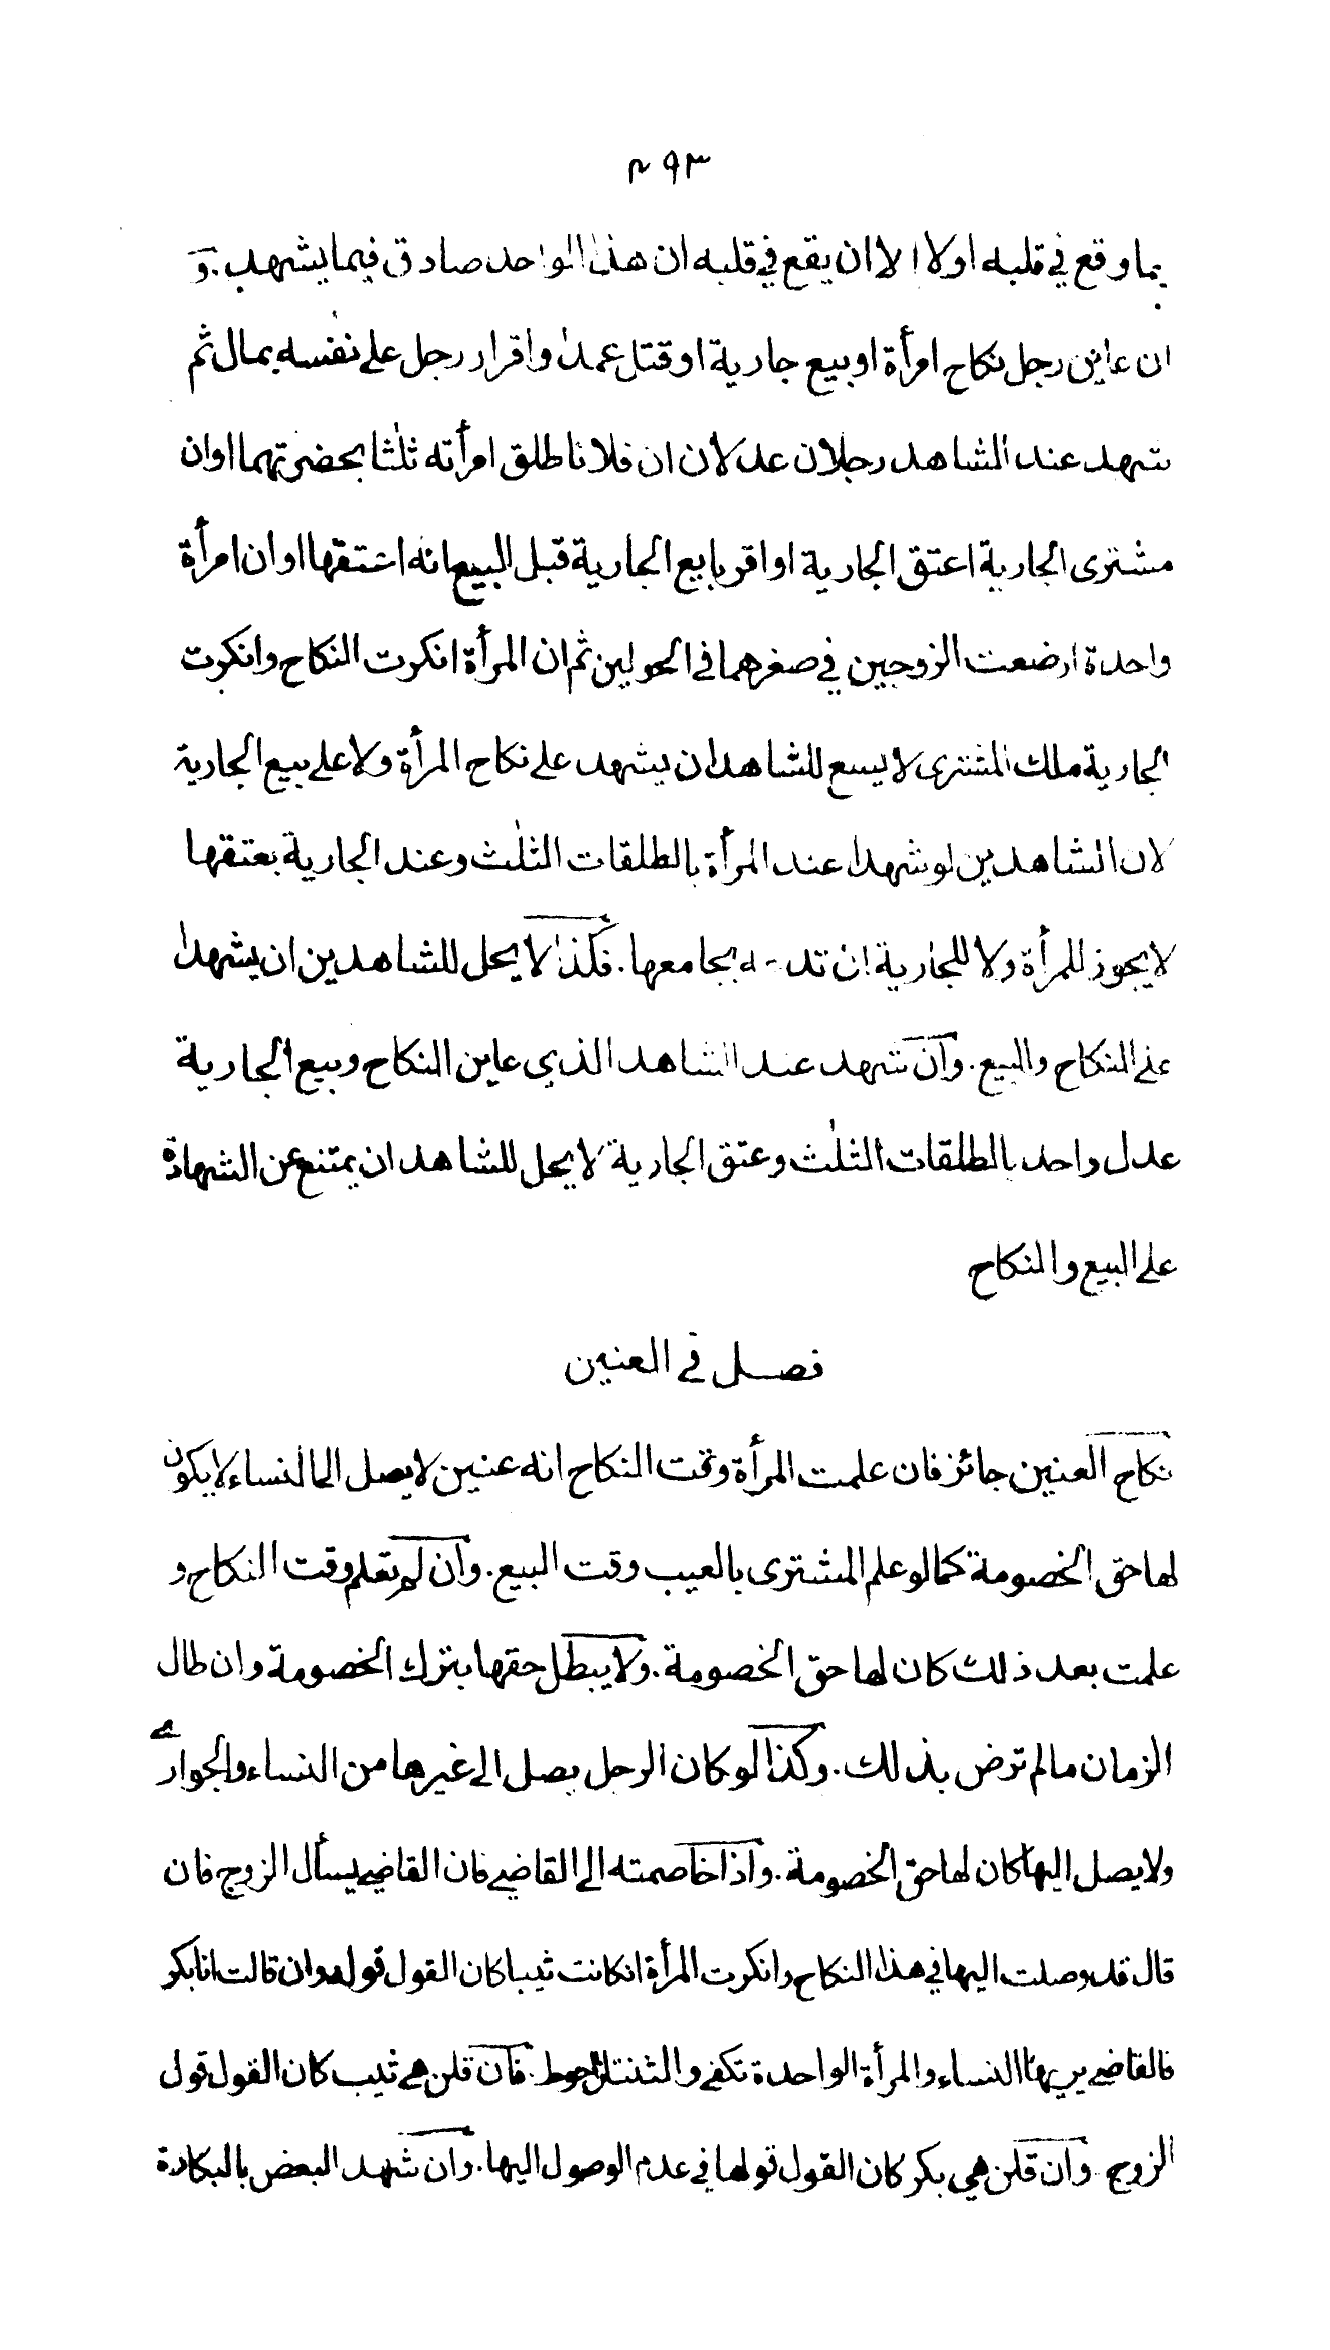 ٢٩٣
بما وقع في قلبه اولا الا ان يقع في قلبه ان هذا الواحد صادق فيما يشهد. و
ان عاين رجل نكاح امرأة او بيع جارية او قتل عمدا واقرار رجل على نفسه بمال ثم
شهد عند الشاهد رجلان عدلان ان فلانا طلق امرأته ثلثا بحضرتهما او ان
مشترى الجارية اعتق الجارية او اقر بايع الجارية قبل البيع انه اعتقها او ان امرأة
واحدة ارضعت الزوجين في صغرهما في الحولين ثم ان المرأة انكرت النكاح وانكرت
الجارية ملك المشترى لا يسع للشاهد ان يشهد على نكاح المرأة ولا على بيع الجارية
لان الشاهدين لو شهدا عند المرأة بالطلقات الثلث وعند الجارية بعتقها
لا يجوز للمرأة ولا للجارية ان يجامعها. فكذا لا يحل للشاهدين ان يشهدا
على النكاح والبيع. وان شهد عند الشاهد الذي عاين النكاح وبيع الجارية
عدل واحد بالطلقات الثلث وعتق الجارية لا يحل للشاهد ان يمتنع عن الشهادة
على البيع والنكاح
فصل في العنين
نكاح العنين جائز فان علمت المرأة وقت النكاح انه عنين لا يصل الى النساء لا يكون
لها حق الخصومة كما لو علم المشترى بالعيب وقت البيع. وان لم تعلم وقت النكاح و
علمت بعد ذلك كان لها حق الخصومة. ولا يبطل حقها بترك الخصومة وان طال
الزمان ما لم ترض بذلك. وكذا لو كان الرجل يصل الى غيرها من النساء والجوارے
ولا يصل اليها كان لها حق الخصومة. واذا خاصمته الى القاضي فان القاضي يسأل الزوج فان
قال قد وصلت اليها في هذا النكاح وانكرت المرأة ان كانت ثيبا كان القول قوله وان قالت انا بكر
فالقاضي يريها النساء والمرأة الواحدة تكفي والثنتان احوط. فان قلن هي ثيب كان القول قول
الزوج. وان قلن هي بكر كان القول قولها في عدم الوصول اليها. وان شهد البعض بالبكارة